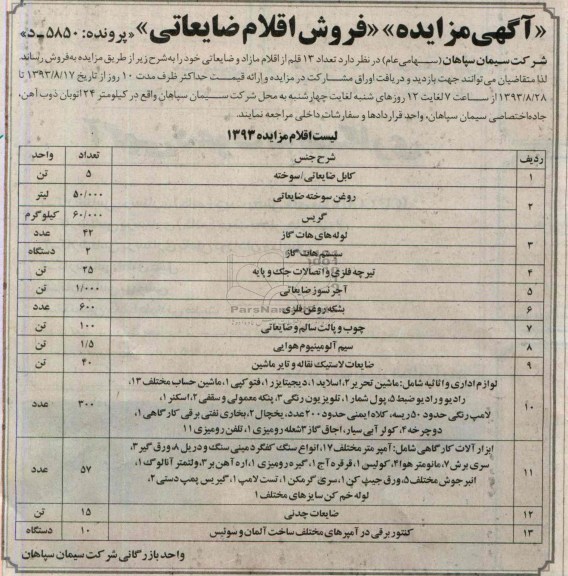 «آگهی مزایده» «فروش اقلام ضایعاتی» «پرونده: ۵۸۵۰-د»
شرکت سیمان سپاهان (سهامی عام) در نظر دارد تعداد ۱۳ قلم از اقلام مازاد و ضایعاتی خود را به شرح زیر از طریق مزایده به فروش رساند.
لذا متقاضیان می‌توانند جهت بازدید و دریافت اوراق مشارکت در مزایده و ارائه قیمت حداکثر ظرف مدت ۱۰ روز از تاریخ ۱۳۹۳/۸/۱۷ تا
۱۳۹۳/۸/۲۸ از ساعت ۷ لغایت ۱۲ روزهای شنبه لغایت چهارشنبه به محل شرکت سیمان سپاهان واقع در کیلومتر ۲۴ اتوبان ذوب آهن،
جاده اختصاصی سیمان سپاهان، واحد قراردادها و سفارشات داخلی مراجعه نمایند.
لیست اقلام مزایده ۱۳۹۳
ردیف شرح جنس تعداد واحد
۱ کابل ضایعاتی/سوخته ۵ تن
۲ روغن سوخته ضایعاتی ۵۰/۰۰۰ لیتر
گریس ۶۰/۰۰۰ کیلوگرم
۳ لوله‌های هات گاز ۴۲ عدد
سیستم هات گاز ۲ دستگاه
۴ تیرچه فلزی و اتصالات جک و پایه ۲۵ تن
۵ آجر نسوز ضایعاتی ۱/۰۰۰ تن
۶ بشکه روغن فلزی ۶۰۰ عدد
۷ چوب و پالت سالم و ضایعاتی ۱۰۰ تن
۸ سیم آلومینیوم هوایی ۱/۵ تن
۹ ضایعات لاستیک نقاله و تایر ماشین ۴۰ تن
۱۰ لوازم اداری و اثاثیه شامل: ماشین تحریر ۲، اسلاید ۱، دیجیتایزر ۱، فتوکپی ۱، ماشین حساب مختلف ۱۳،
رادیو و رادیو ضبط ۵، پول شمار ۱، تلویزیون رنگی ۳، پنکه معمولی و سقفی ۲، اسکنر ۱،
لامپ رنگی حدود ۵۰ ریسه، کلاه ایمنی حدود ۲۰۰ عدد، یخچال ۲، بخاری نفتی برقی کارگاهی ۱،
دوچرخه ۴، کولر آبی سیار، اجاق گاز ۳ شعله رومیزی ۱، تلفن رومیزی ۱۱ ۳۰۰ عدد
۱۱ ابزار آلات کارگاهی شامل: آمپر متر مختلف ۱۷، انواع سنگ کفگرد مینی سنگ و دریل ۸، ورق گیر ۳،
سری برش ۷، مانومتر هوا ۴، کولیس ۱، قرقره آج ۱، گیره رومیزی ۱، اره آهن بر ۳، ولتمتر آنالوگ ۱،
انبر جوش مختلف ۵، ورق جیپ کن ۱، سری گرمکن ۱، تست لامپ ۱، گیریس پمپ دستی ۲،
لوله خم کن سایزهای مختلف ۱ ۵۷ عدد
۱۲ ضایعات چدنی ۱۵ تن
۱۳ کنتور برقی در آمپرهای مختلف ساخت آلمان و سوئیس ۱۰ دستگاه
واحد بازرگانی شرکت سیمان سپاهان